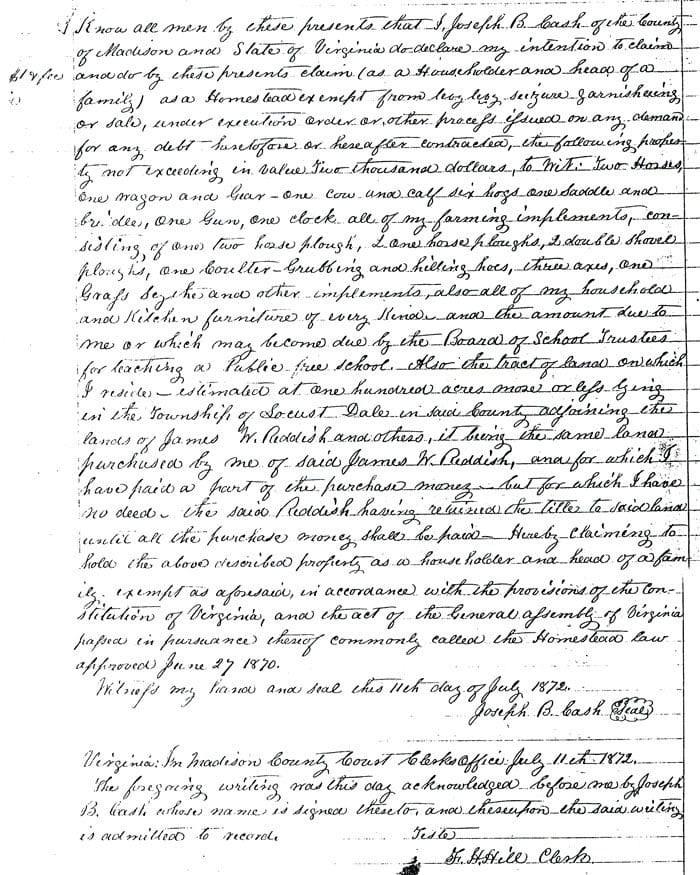 Know all men by these presents that I, Joseph B. Cash of the County
of Madison and State of Virginia do declare my intention to claim
and do by these presents claim (as a Householder and head of a
family) as a Homestead exempt from levy levy seizure garnisheeing
or sale, under execution order or other process issued on any demand
for any debt heretofore or hereafter contracted, the following proper-
ty not exceeding in value Two thousand dollars, to Wit: Two Horses,
one wagon and Gear – one cow and calf six hogs one saddle and
bridle, one Gun, one clock all of my farming implements, con-
sisting of one two horse plough, 2 one horse ploughs, 2 double shovel
ploughs, one Coulter – Grubbing and hilling hoes, three axes, one
Grass Scythe and other implements, also all of my household
and Kitchen furniture of every Kind and the amount due to
me or which may become due by the Board of School Trustees
for teaching a Public free school. Also the tract of land on which
I reside – estimated at one hundred acres more or less lying
in the Township of Locust Dale in said County adjoining the
lands of James W. Reddish and others, it being the same land
purchased by me of said James W. Reddish, and for which I
have paid a part of the purchase money – but for which I have
no deed – the said Reddish having retained the title to said land
until all the purchase money shall be paid – Hereby Claiming to
hold the above described property as a householder and head of a fam-
ily exempt as aforesaid, in accordance with the provisions of the con-
stitution of Virginia, and the act of the General assembly of Virginia
passed in pursuance thereof commonly called the Homestead law
approved June 27 1870.
Witness my hand and seal this 11th day of July 1872.
Joseph B. Cash Seal
Virginia: In Madison County Court Clerks Office July 11th 1872.
The foregoing writing was this day acknowledged before me by Joseph
B. Cash whose name is signed thereto, and thereupon the said writing
is admitted to record.
Teste
F. H. Hill Clerk